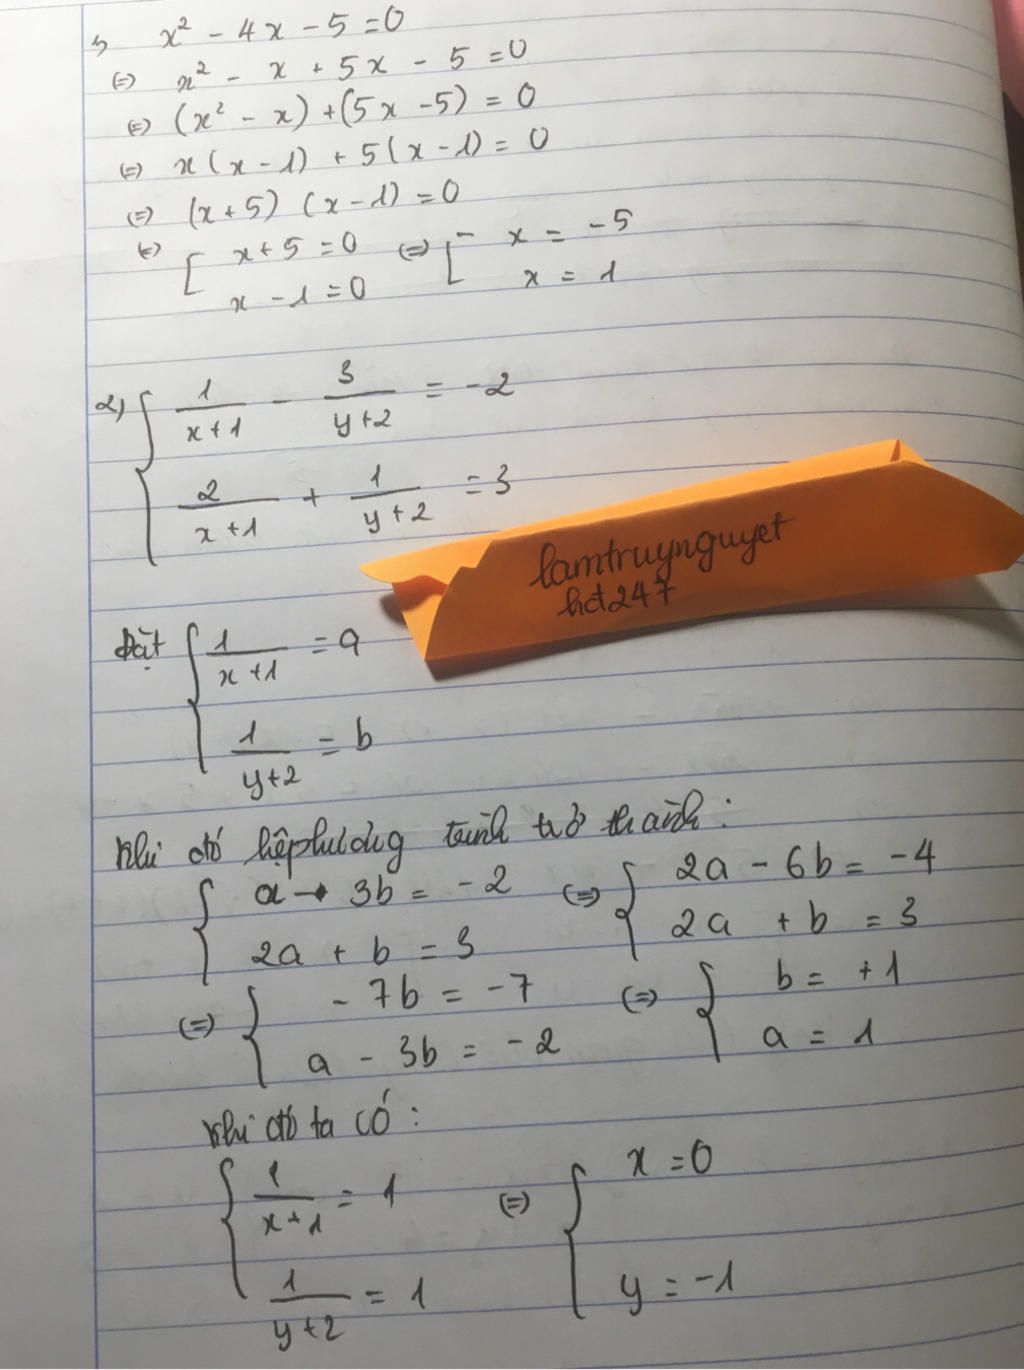 1, x² - 4x - 5 = 0
(=) x² - x + 5x - 5 = 0
(=) (x² - x) + (5x - 5) = 0
(=) x(x - 1) + 5(x - 1) = 0
(=) (x + 5) (x - 1) = 0
(=) [ x + 5 = 0 (=) [ x = -5
x - 1 = 0 x = 1
2) { 1/(x+1) - 3/(y+2) = -2
2/(x+1) + 1/(y+2) = 3
lamtruynguyet
hct247
Đặt { 1/(x+1) = a
1/(y+2) = b
Khi đó hệ phương trình trở thành:
{ a - 3b = -2 (=) { 2a - 6b = -4
2a + b = 3 2a + b = 3
(=) { - 7b = -7 (=) { b = +1
a - 3b = -2 a = 1
Khi đó ta có:
{ 1/(x+1) = 1 (=) { x = 0
1/(y+2) = 1 y = -1